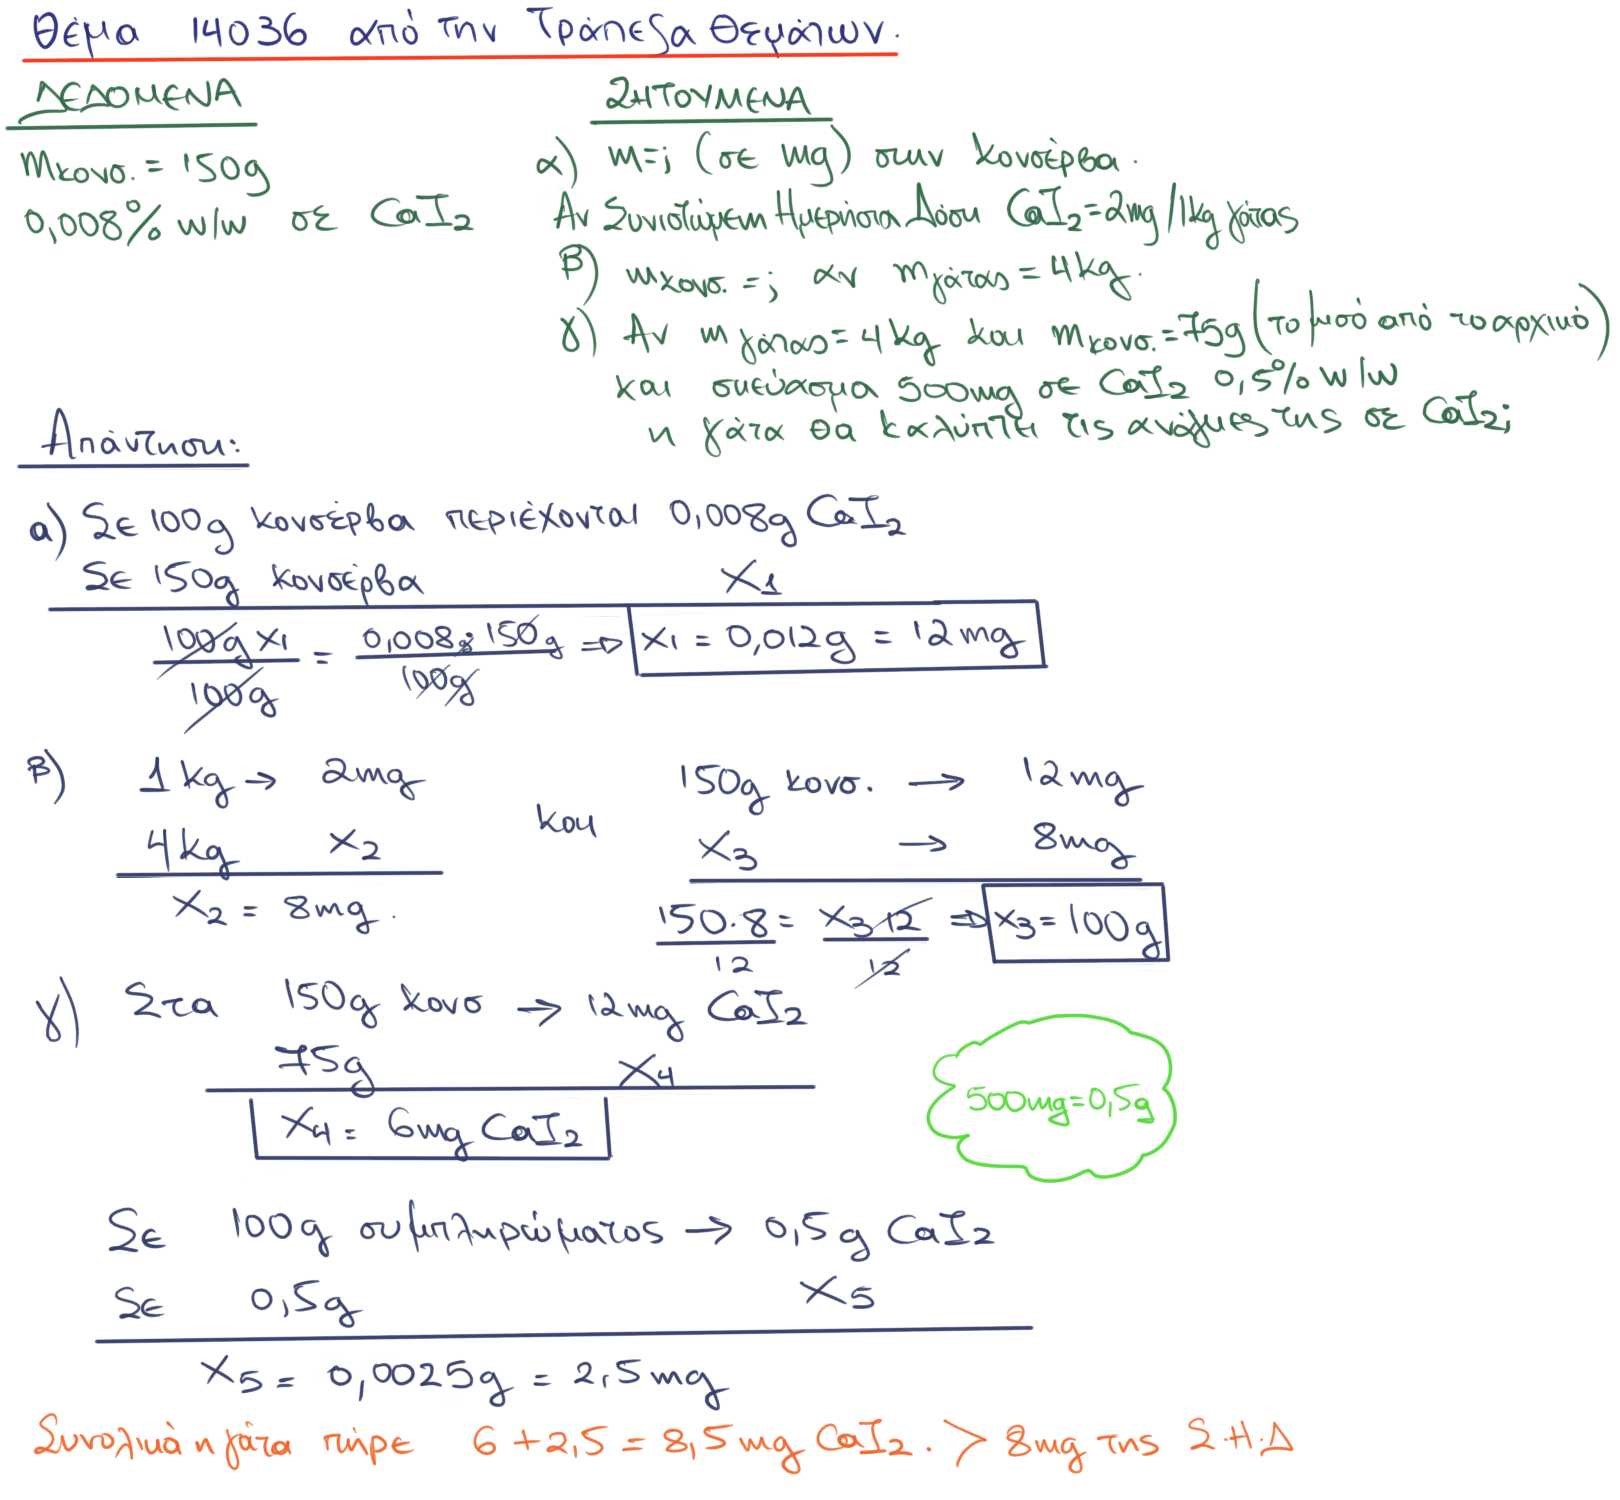 Θέμα 14036 από την Τράπεζα Θεμάτων.
ΔΕΔΟΜΕΝΑ
mκονσ. = 150g
0,008% w/w σε CaI2
ΖΗΤΟΥΜΕΝΑ
α) m=; (σε mg) στην κονσέρβα.
Αν Συνιστώμενη Ημερήσια Δόση CaI2=2mg/1kg γάτας
β) mκονσ. =; αν mγάτας = 4kg.
γ) Αν mγάτας = 4kg και mκονσ. = 75g (το μισό από το αρχικό)
και σκεύασμα 500mg σε CaI2 0,5% w/w
η γάτα θα καλύπτει τις ανάγκες της σε CaI2;
Απάντηση:
α) Σε 100g κονσέρβα περιέχονται 0,008g CaI2
Σε 150g κονσέρβα X1
100g X1 / 100g = 0,008g 150g / 100g ⇒ X1 = 0,012g = 12mg
β) 1kg → 2mg
4kg X2
X2 = 8mg.
και
150g κονσ. → 12mg
X3 → 8mg
150·8 / 12 = X3 12 / 12 ⇒ X3 = 100g
γ) Στα 150g κονσ → 12mg CaI2
75g X4
X4 = 6mg CaI2
500mg=0,5g
Σε 100g συμπληρώματος → 0,5g CaI2
Σε 0,5g X5
X5 = 0,0025g = 2,5mg
Συνολικά η γάτα πήρε 6 + 2,5 = 8,5mg CaI2. > 8mg της Σ.Η.Δ